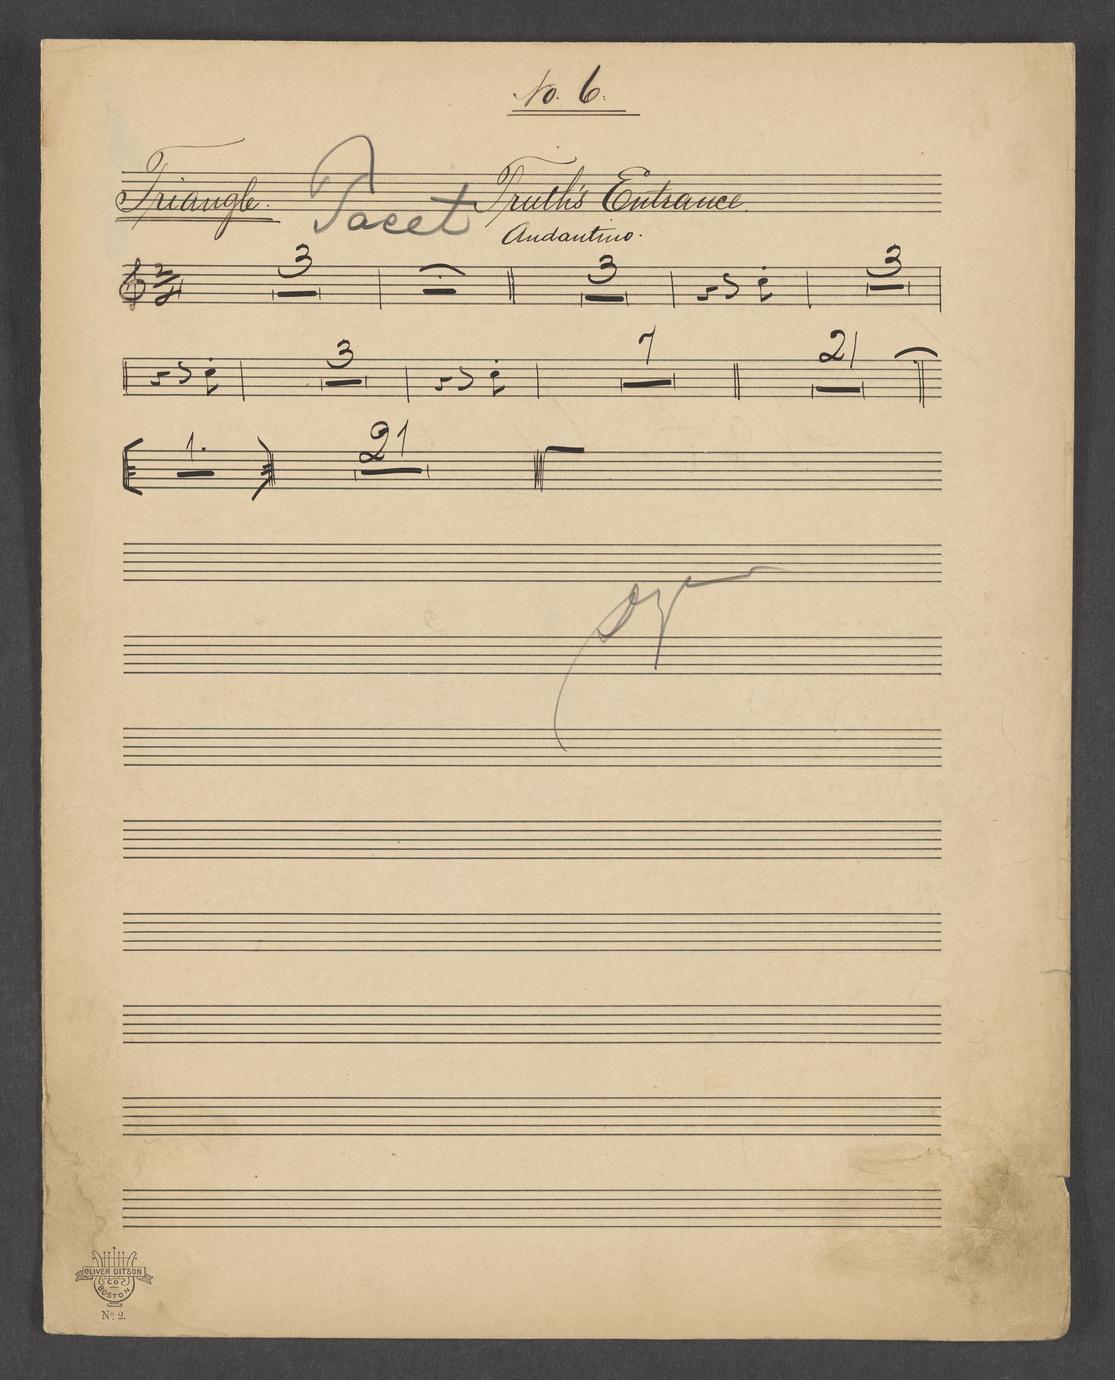 No. 6.
Triangle. Tacet Truth's Entrance.
Andantino.
3 3 3
3 7 21
1. 21
OLIVER DITSON
CO
BOSTON
No. 2.